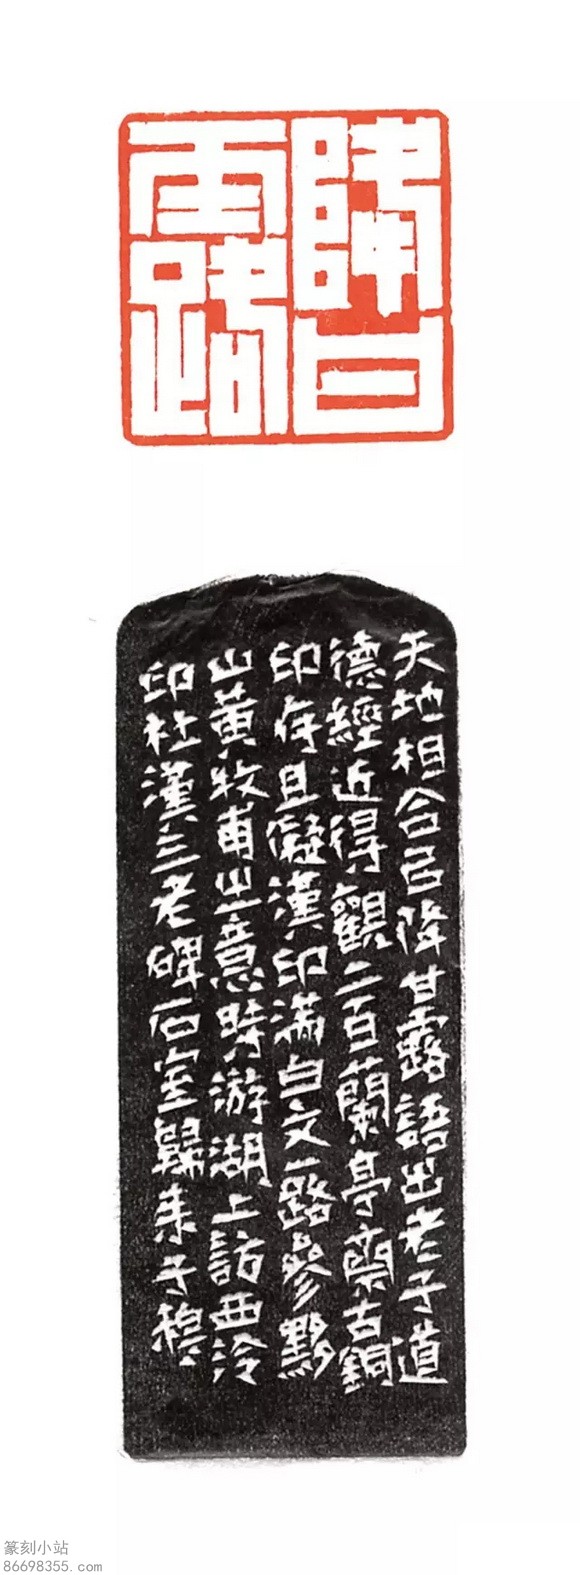 降甘
露
天地相合㠯降甘露語出老子道
德經近得觀二百蘭亭齋古銅
印存且儗漢印滿白文一路參黟
山黃牧甫之意時游湖上訪西泠
印社漢三老碑石室歸來子穆
篆刻小站
86698355.com